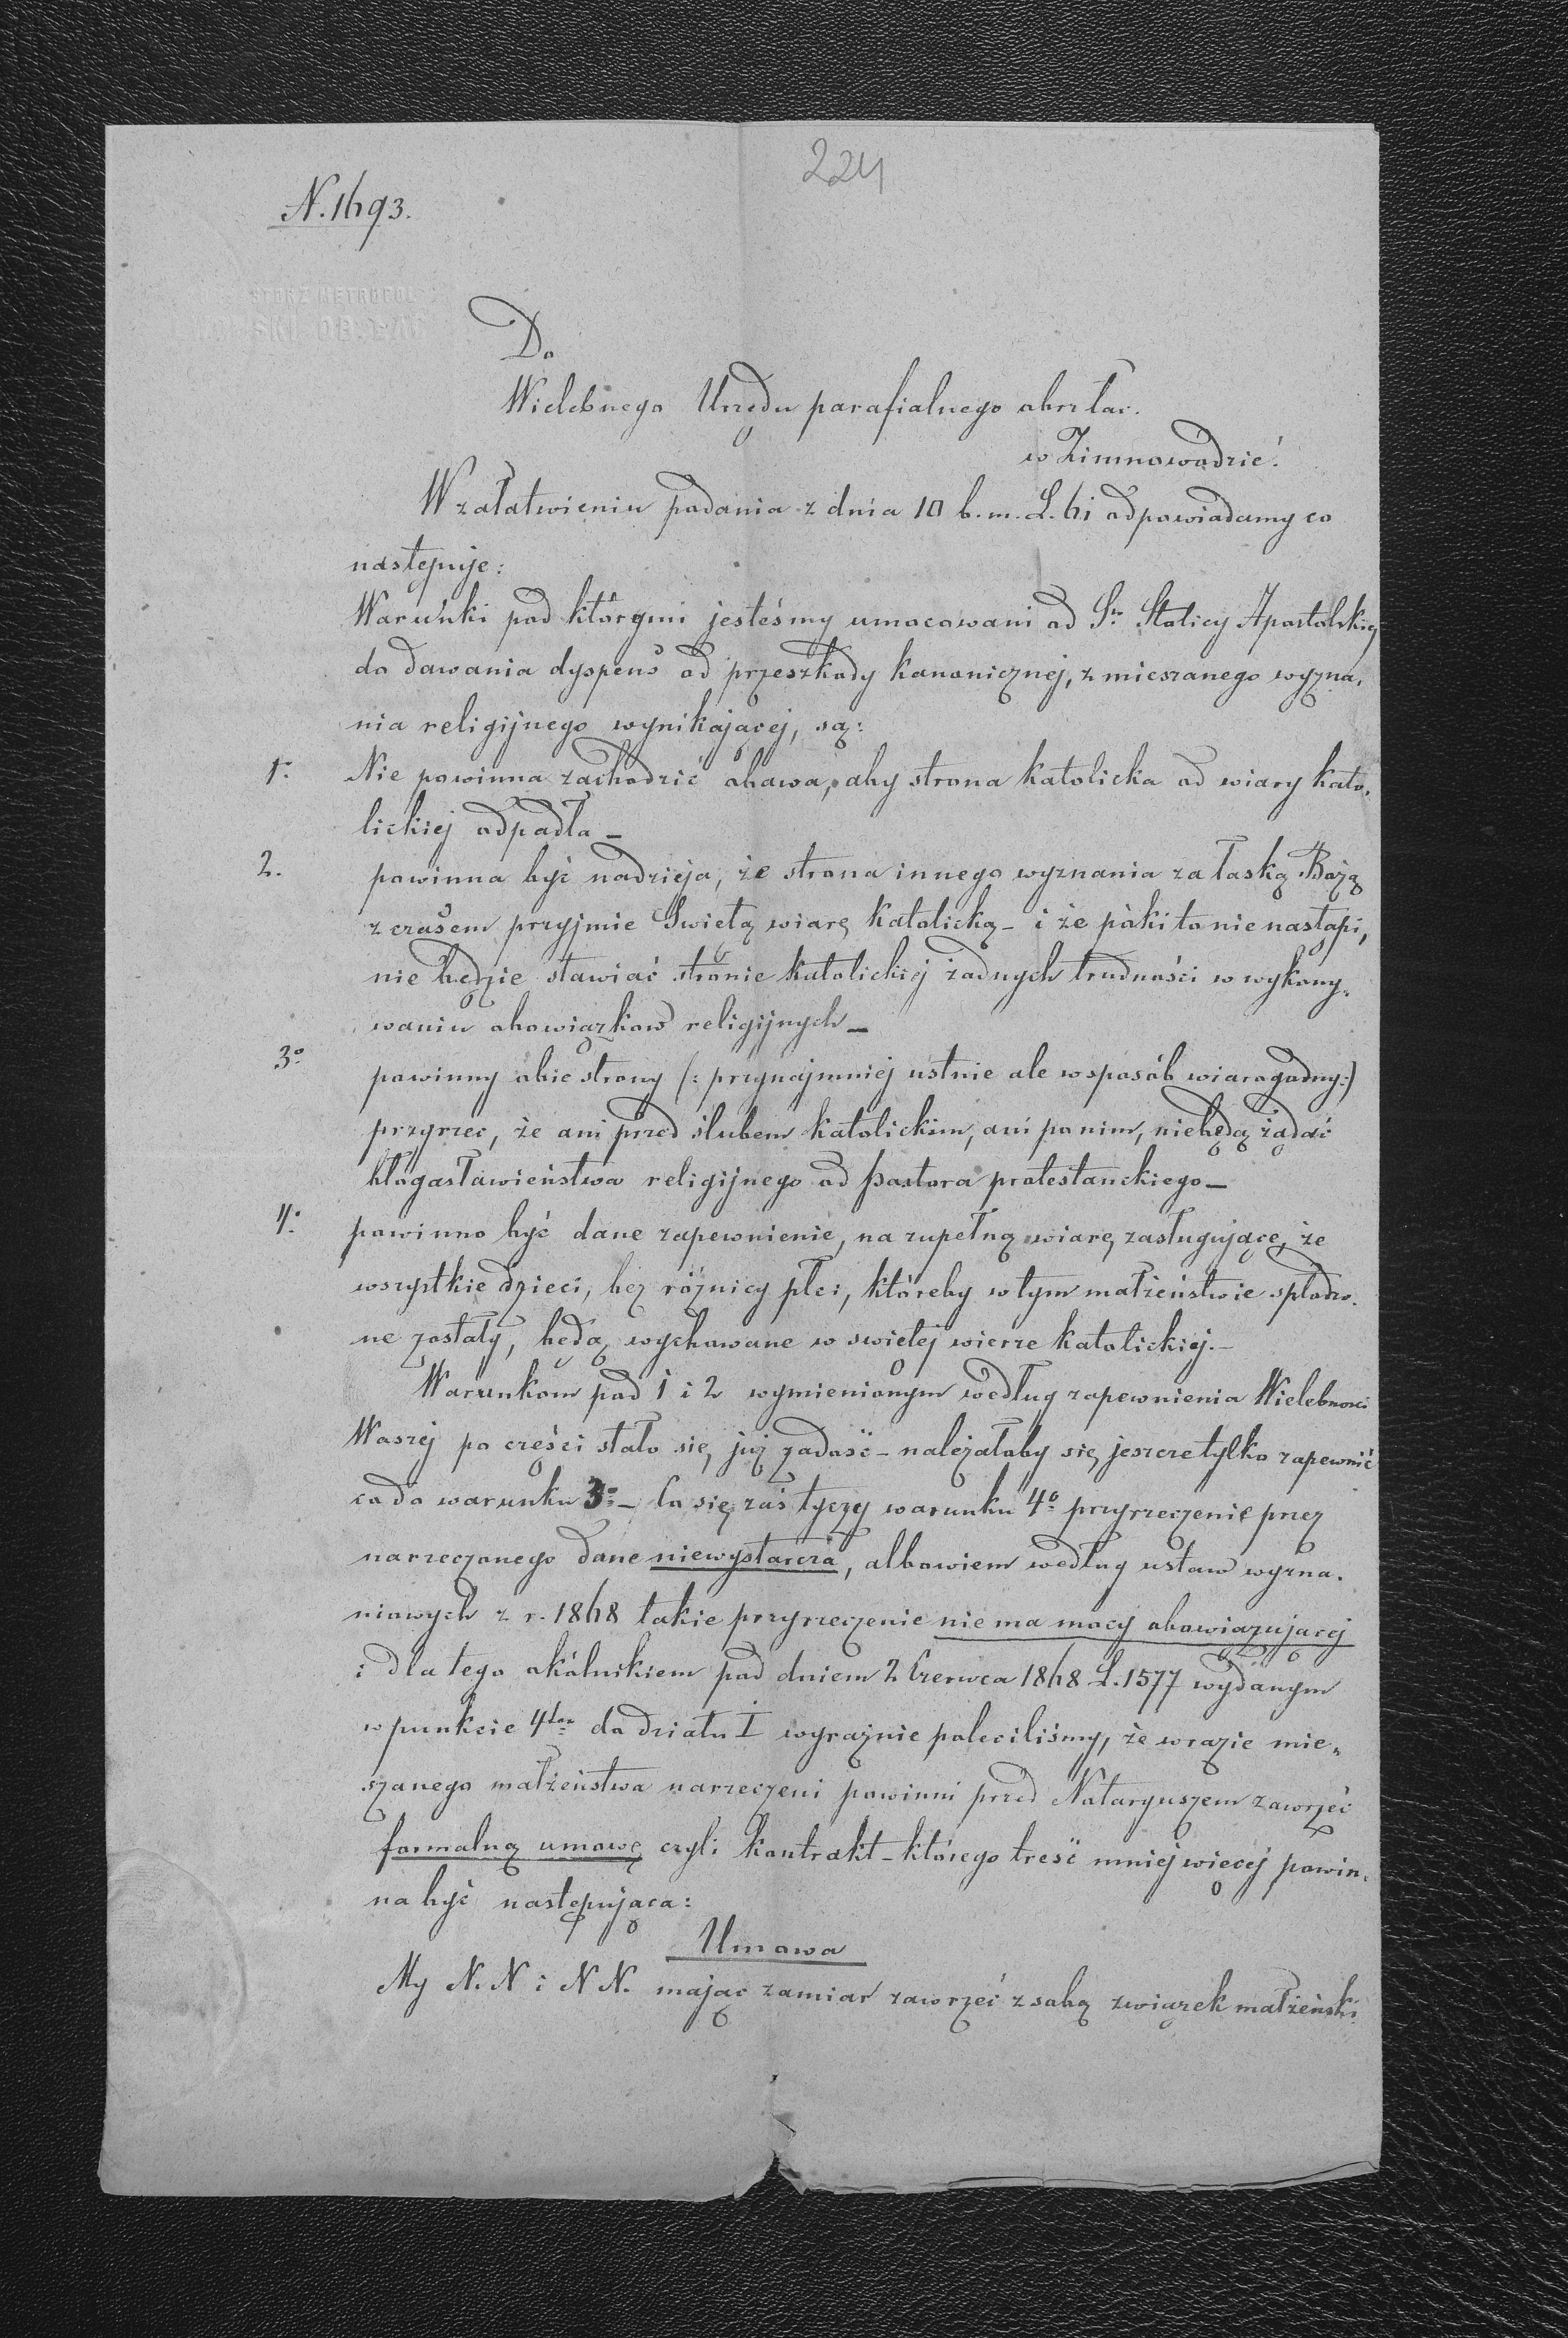 224
N. 1693.
Do
Wielebnego Urzędu parafialnego obrz łac.
w Zimnowodzie.
W załatwieniu podania z dnia 10 b. m. L. 61 odpowiadamy co
następuje:
Warunki pod którymi jesteśmy umocowani od Stej Stolicy Apostolskiej
do dawania dyspens od przeszkody kanonicznej, z mieszanego wyzna„
nia religijnego wynikającej, są:
1o Nie powinna zachodzić obawa, aby strona katolicka od wiary kato„
lickiej odpadła –
2. powinna być nadzieja, że strona innego wyznania za łaską Bożą
z czasem przyjmie Świetą wiarę katolicką – i że póki to nie nastąpi,
nie będzie stawiać stronie katolickiej żadnych trudności w wykony„
waniu obowiązkow religijnych –
3o powinny obie strony (: przynajmniej ustnie ale wsposób wiarogodny :)
przyrzec, że ani przed ślubem katolickim, ani po nim, niebędą żądać
błogosławieństwa religijnego od pastora protestanckiego –
4o powinno być dane zapewnienie, na zupełną wiarę zasługujące, że
wszystkie dzieci, bez różnicy płci, któreby w tym małżeństwie spłodzo„
ne zostały, będą wychowane w swietej wierze katolickiej. –
Warunkom pod 1 i 2 wymienionym według zapewnienia Wielebności
Waszej po części stało się już zadość – należałoby się jeszcze tylko zapewnić
co do warunku 3o – Co się zaś tyczy warunku 4o przyrzeczenie przez
narzeczonego dane niewystarcza, albowiem według ustaw wyzna„
niowych z r. 1868 takie przyrzeczenie nie ma mocy obowiązującej
i dla tego okólnikiem pod dniem 2 Czerwca 1868 L. 1577 wydanym
w punkcie 4tym do działu I wyraźnie poleciliśmy, że wrazie mie„
szanego małżeństwa narzeczeni powinni przed Notaryuszem zawrzeć
formalną umowę czyli kontrakt – którego treść mniej wiecej powin„
na być następująca:
Umowa
My N. N i N N. mając zamiar zawrzeć z sobą związek małżeński